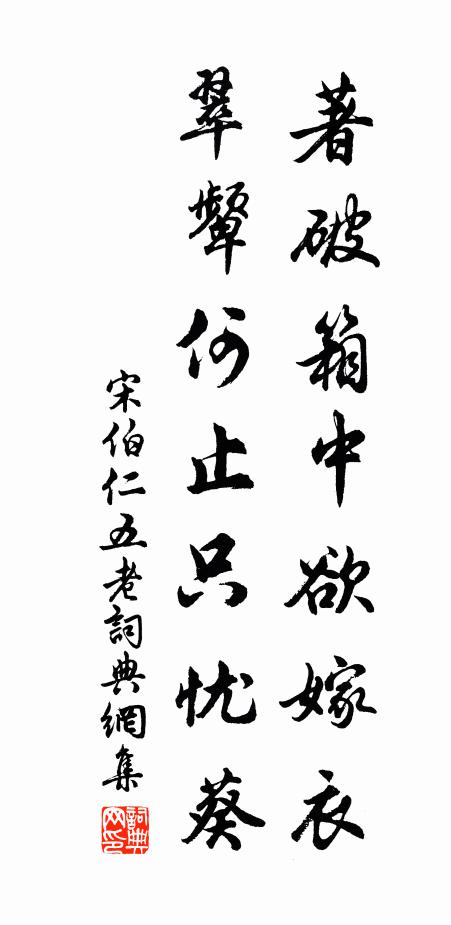 著破箱中欲嫁衣
翠颦何止只忧葵
宋伯仁五老詞典網集
詞典网印